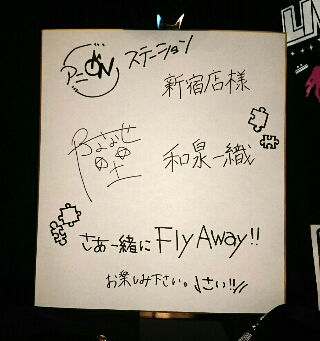 アニON ステーション
新宿店様
和泉一織
さあ一緒に Fly Away!!
お楽しみ下さい。♪さい!!